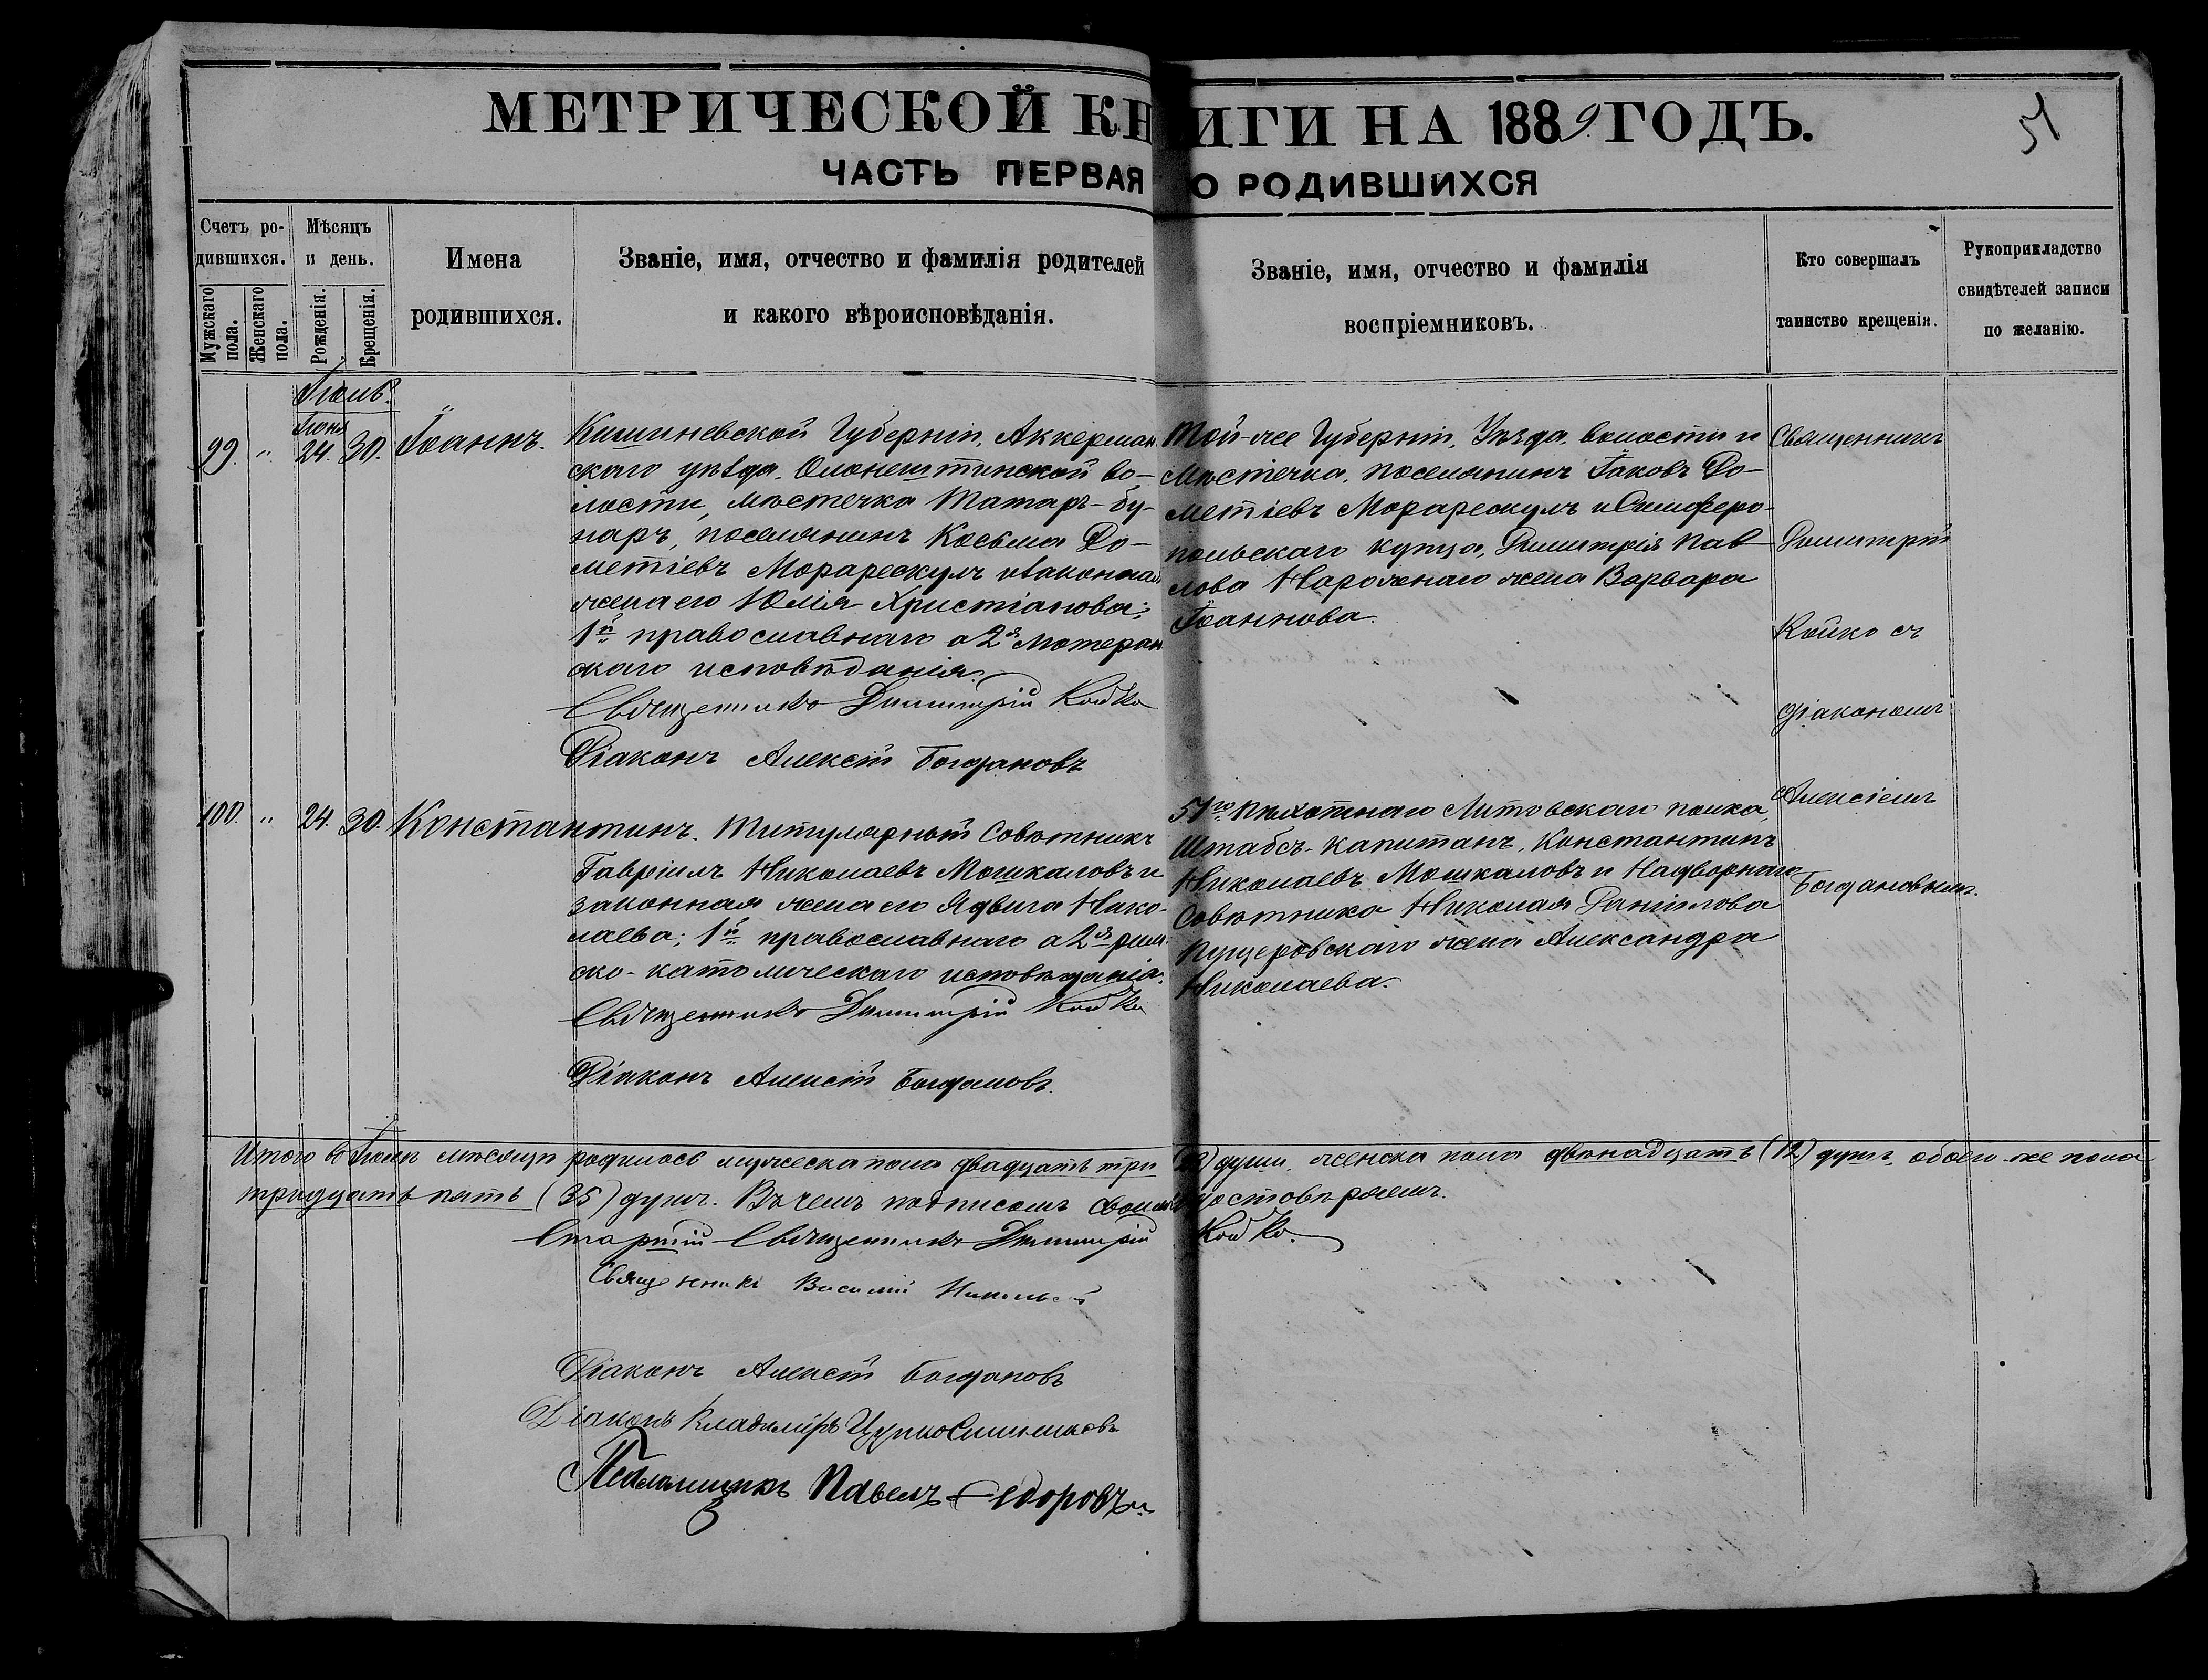 МЕТРИЧЕСКОЙ КНИГИ НА 1889 ГОДЪ.
51
ЧАСТЬ ПЕРВАЯ О РОДИВШИХСЯ
Счетъ ро-
дившихся.
Мужскаго пола.
Женскаго пола.
Мѣсяцъ
и день.
Рожденія.
Крещенія.
Имена
родившихся.
Званіе, имя, отчество и фамилія родителей
и какого вѣроисповѣданія.
Званіе, имя, отчество и фамилія
воспріемниковъ.
Кто совершалъ
таинство крещенія.
Рукоприкладство
свидѣтелей записи
по желанію.
Іюль.
Іюня
99. " 24. 30. Іоаннъ.
Кишиневской Губерніи, Аккерман-
скаго уѣзда, Олонештинской во-
лости, мѣстечка Татаръ-бу-
наръ, поселянинъ Косьма До-
метіевъ Морарескулъ и законная
жена его Юлія Христіанова;
1й православнаго а 2я лютеран
скаго исповѣданія.
Священникъ Димитрій Койко
Діаконъ Алексій Богдановъ
Той-же Губерніи, Уѣзда, волости и
мѣстечка, поселянинъ Іаковъ До-
метіевъ Морарескулъ и Симферо-
польскаго купца, Димитрія Пав-
лова жена Варвара
Іоаннова.
Священникъ
Димитрій
Койко съ
діакономъ
Алексіемъ
Богдановымъ.
100. " 24. 30. Константинъ.
Титулярный Совѣтникъ
Гавріилъ Николаевъ Мошкаловъ и
законная жена его Ядвига Нико-
лаева; 1й православнаго а 2я рим-
ско-католическаго исповѣданія.
Священникъ Димитрій Койко
Діаконъ Алексій Богдановъ.
51го пѣхотнаго Литовскаго полка,
Штабсъ-капитанъ, Константинъ
Николаевъ Мошкаловъ и Надворнаго
Совѣтника Николая Даніилова
жена Александра
Николаева.
Итого въ Іюлѣ мѣсяцѣ родилось мужеска пола двадцать три (23) души, женска пола двѣнадцать (12) душъ, обоего-же пола
тридцать пять (35) душъ. Въ чемъ подписомъ своимъ и удостовѣряемъ.
Старшій Священникъ Димитрій Койко.
Священникъ Василій
Діаконъ Алексій Богдановъ
Діаконъ Владиміръ
Псаломщикъ Павелъ Федоровъ